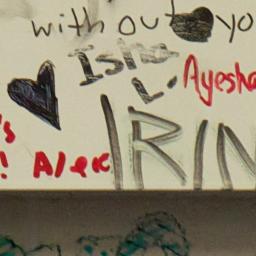 without yo
Isha
L. Ayesha
's
! Alex IRIN